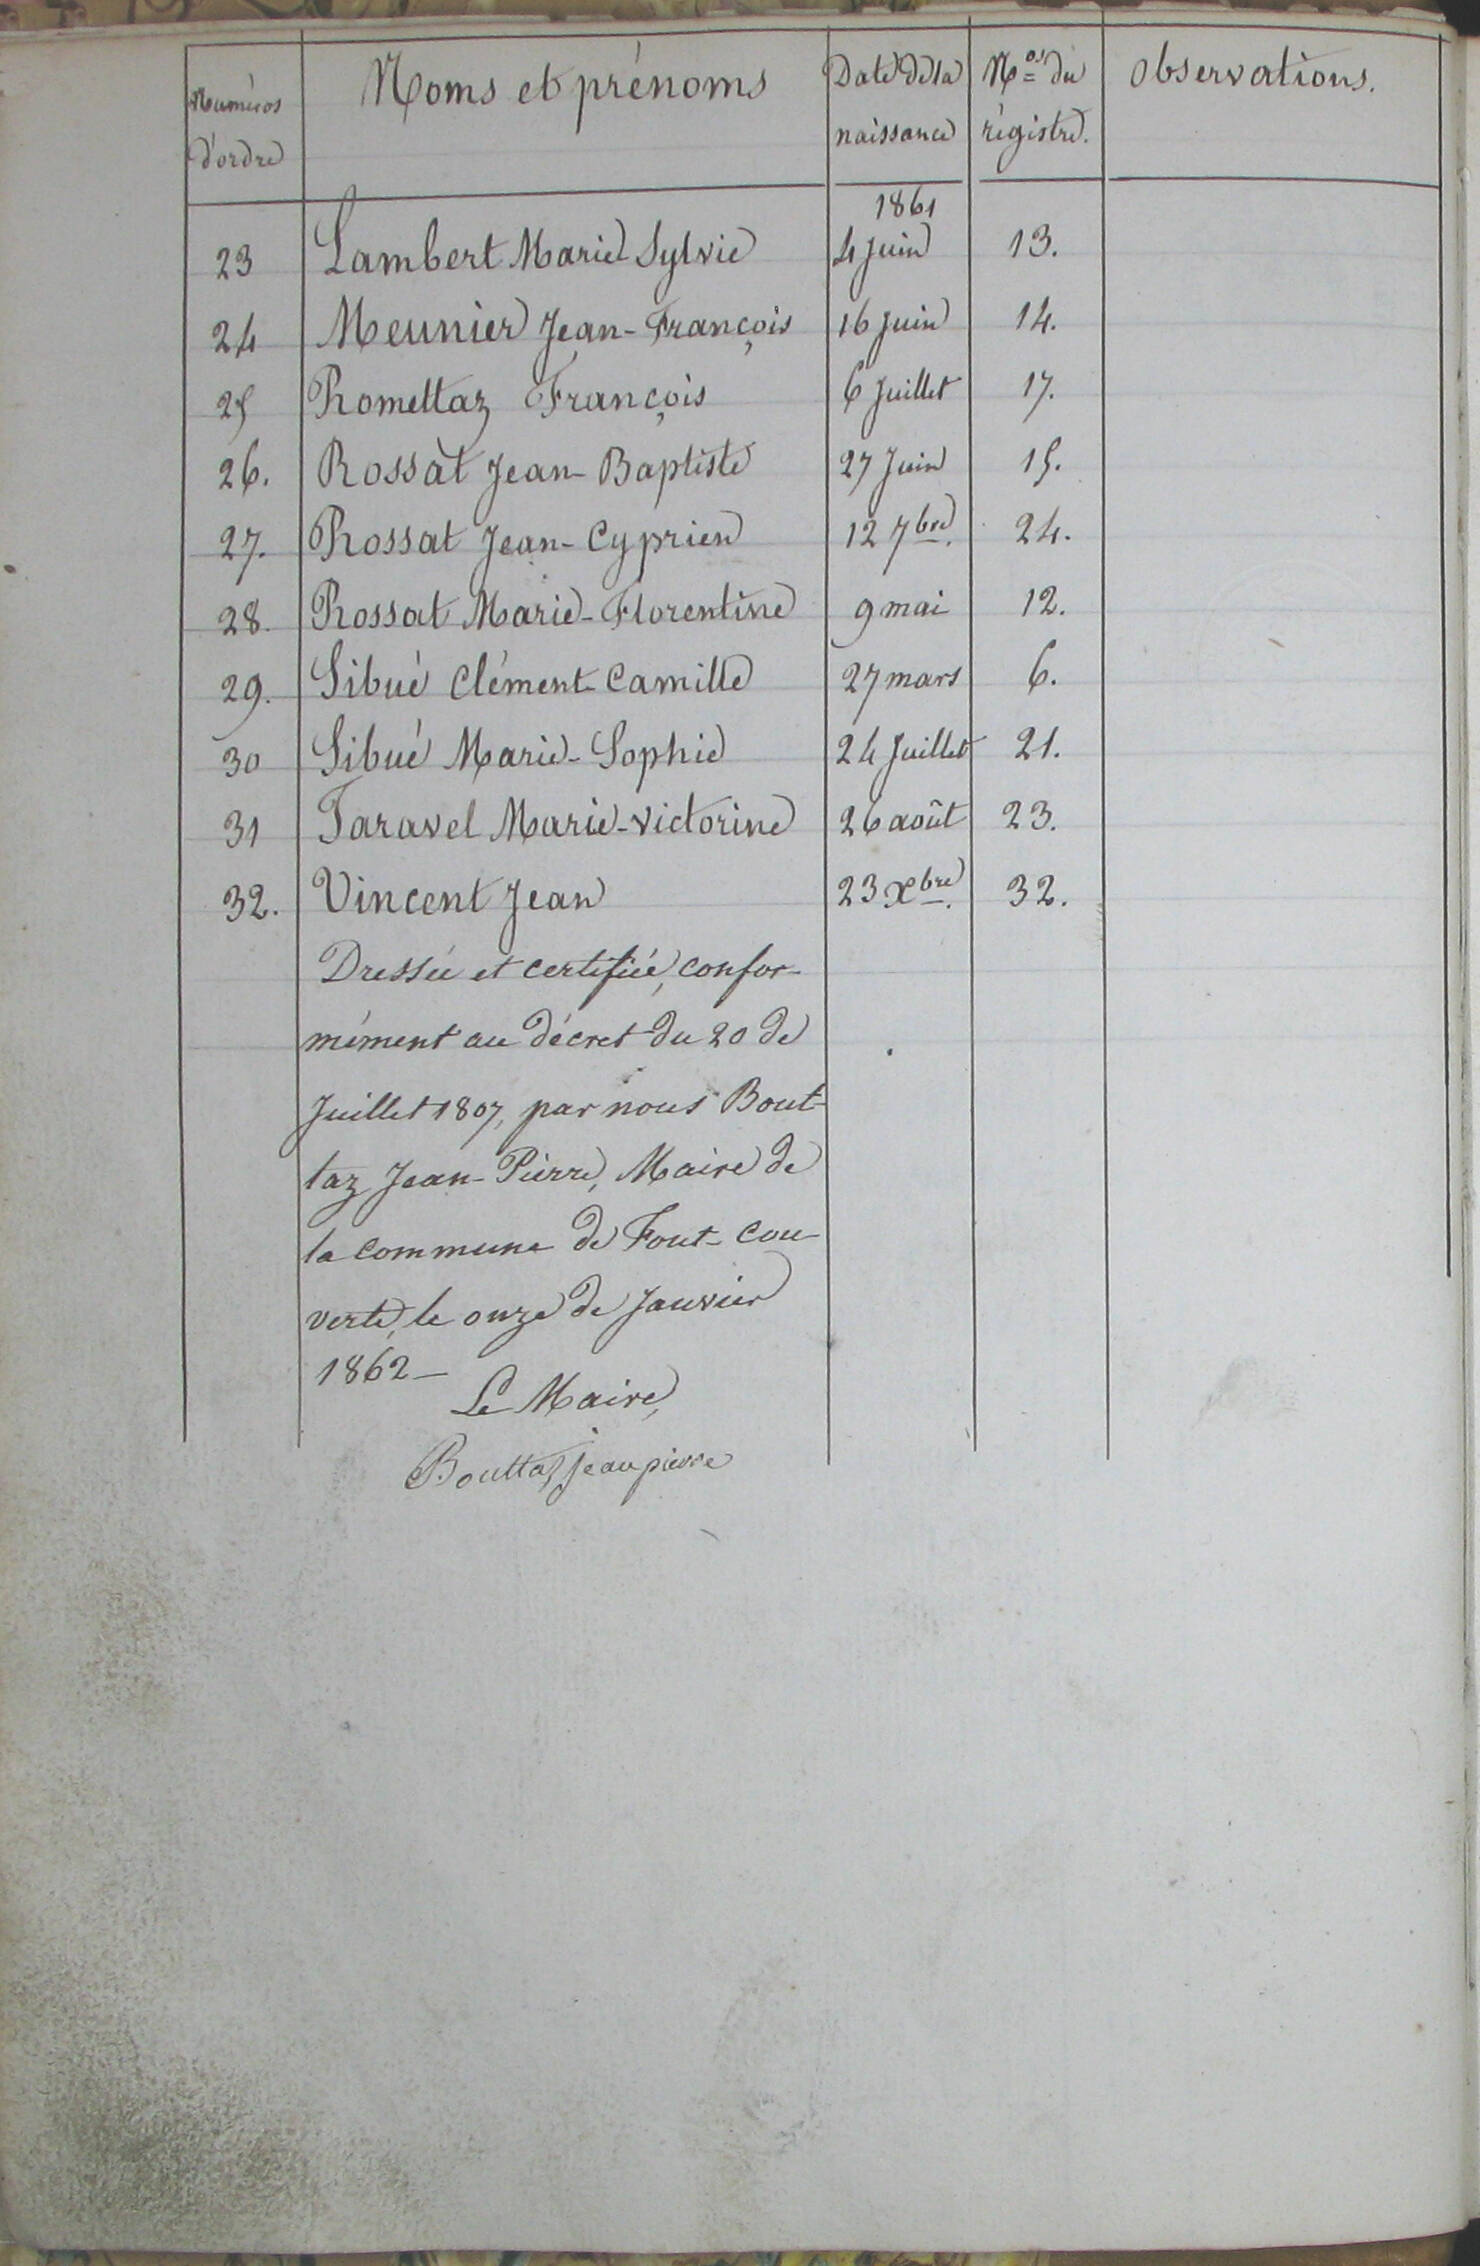 Numéros d'ordre | Noms et prénoms | Date de la naissance | Nos du régistre. | Observations.
1861
23 Lambert Marie Sylvie 4 Juin 13.
24 Meunier Jean-François 16 Juin 14.
25 Romettaz François 6 Juillet 17.
26. Rossat Jean-Baptiste 27 Juin 15.
27. Rossat Jean-Cyprien 12 7bre. 24.
28. Rossat Marie-Florentine 9 mai 12.
29. Sibué Clément-Camille 27 mars 6.
30 Sibué Marie-Sophie 24 Juillet 21.
31 Taravel Marie-Victorine 26 août 23.
32. Vincent Jean 23 Xbre. 32.
Dressée et certifiée, confor-
mément au décret du 20 de
Juillet 1807, par nous Bout-
taz Jean-Pierre, Maire de
la commune de Font-Cou-
verte, le onze de Janvier
1862 –
Le Maire,
Bouttaz jean pierre